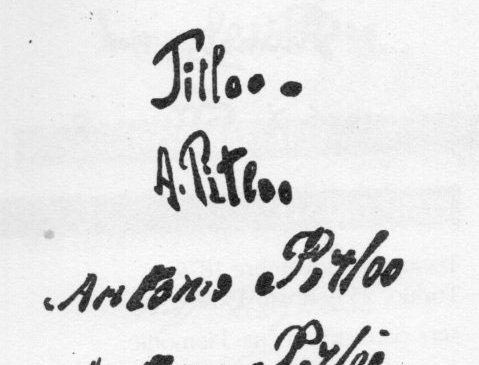 Pitloo.
A. Pitloo
Antonio Pitloo
Pitloo